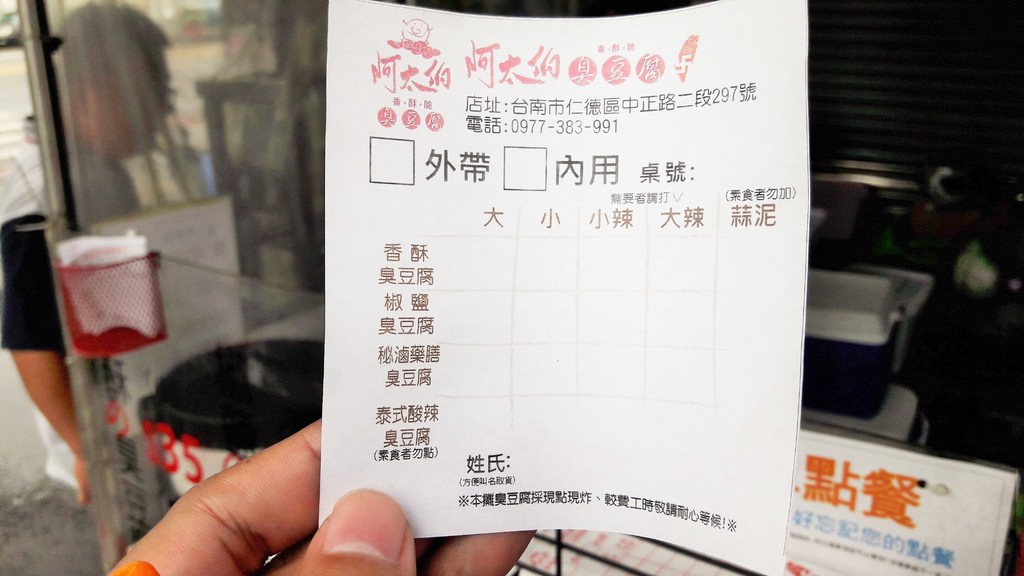 阿太伯
香·酥·脆
臭豆腐
阿太伯 香·酥·脆 臭豆腐
店址:台南市仁德區中正路二段297號
電話:0977-383-991
外帶 內用 桌號:
需要者請打∨ (素食者勿加)
大 小 小辣 大辣 蒜泥
香酥
臭豆腐
椒鹽
臭豆腐
秘滷藥膳
臭豆腐
泰式酸辣
臭豆腐
(素食者勿點)
姓氏:
(方便叫名取貨)
※本攤臭豆腐採現點現炸、較費工時敬請耐心等候!※
35
點餐
好忘記您的點餐